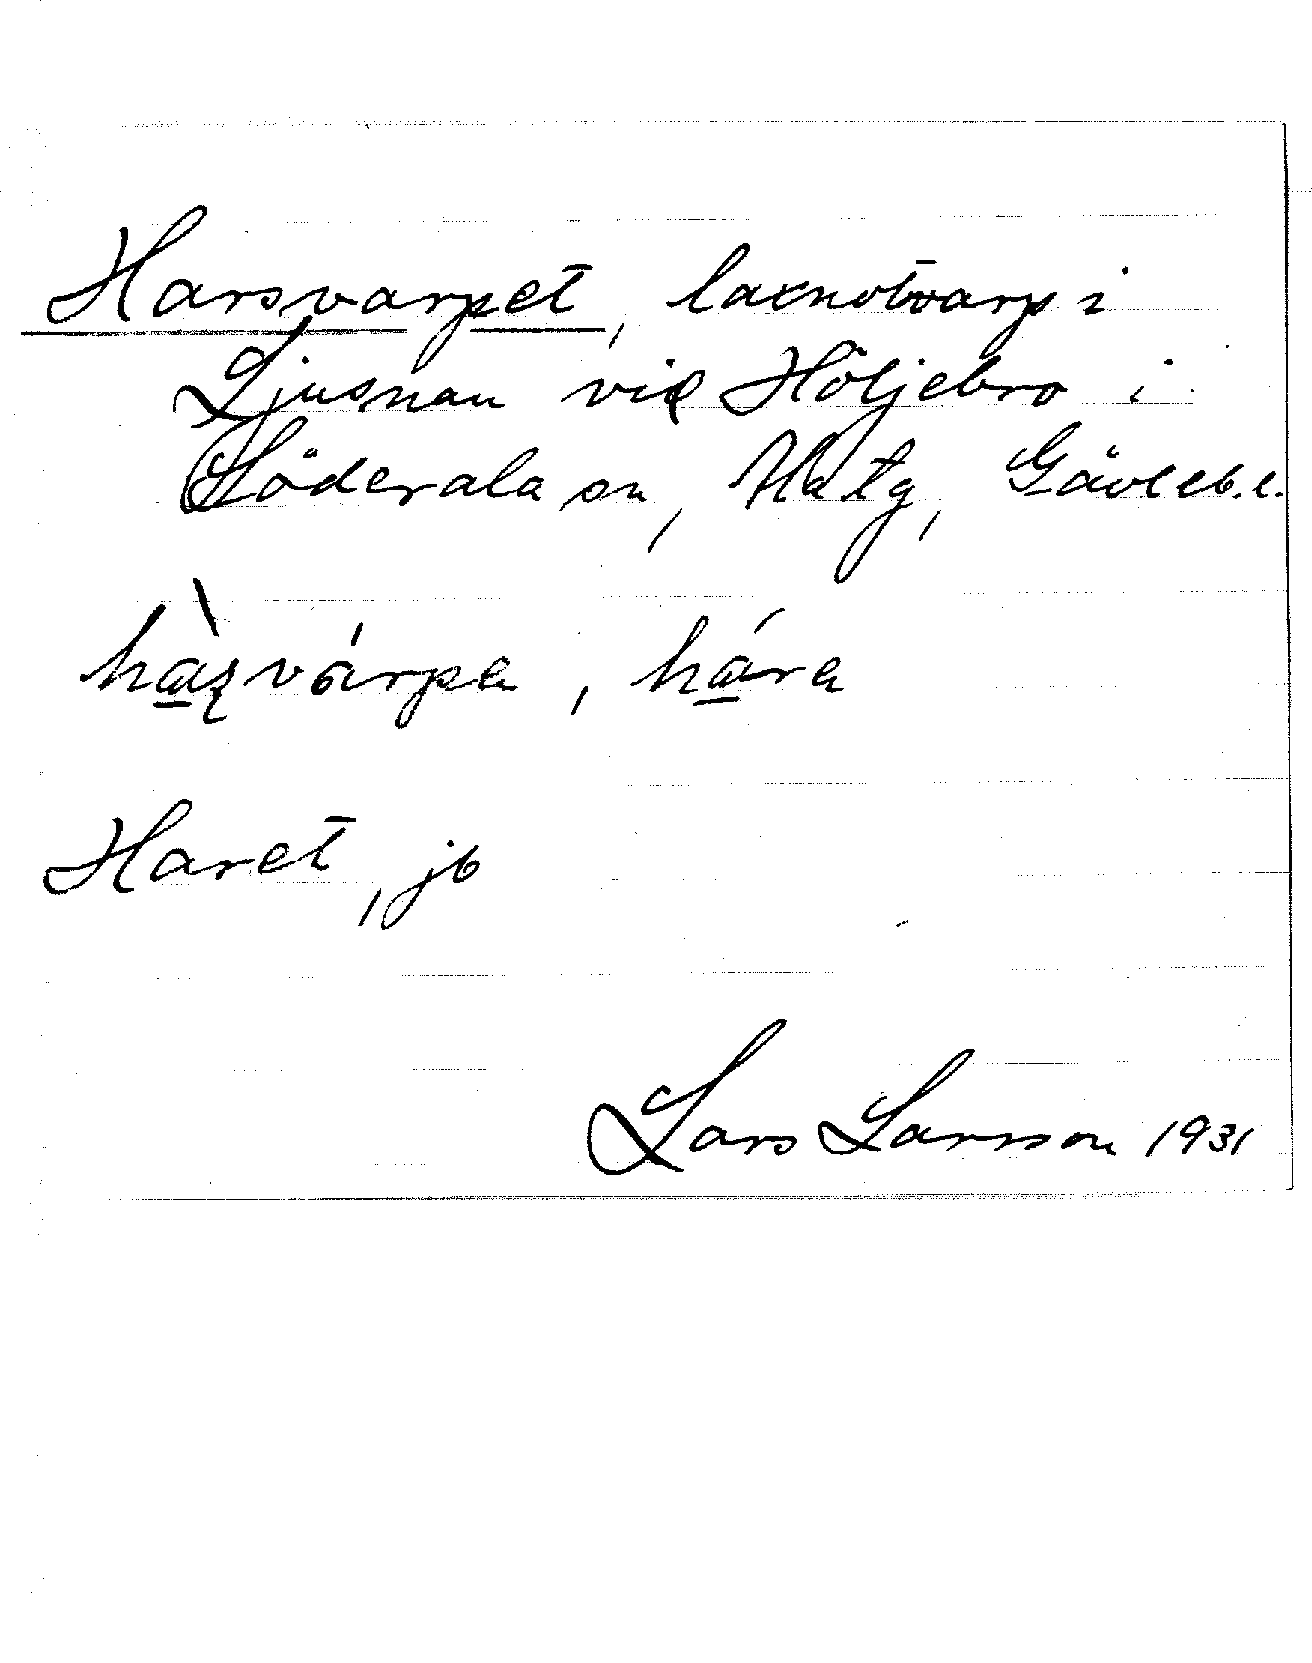 Harsvarpet, laxnotvarp i
Ljusnan vid Höljebro i
Söderala sn, Hatg, Gävleb.l.
hàʂvárpa, hára
Haret, jb
Lars Larsson 1931